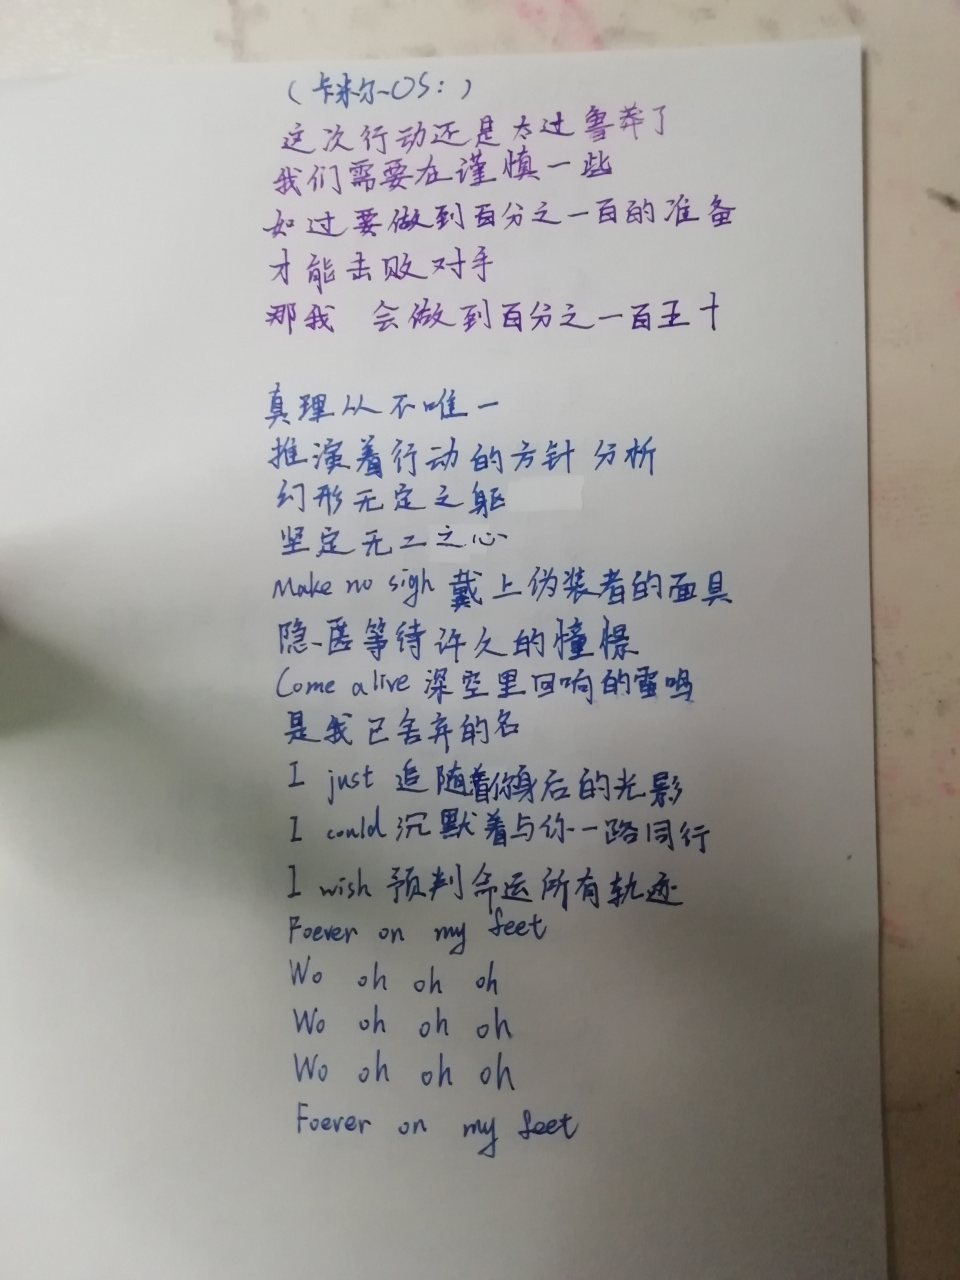 （卡米尔OS：）
这次行动还是太过鲁莽了
我们需要在谨慎一些
如过要做到百分之一百的准备
才能击败对手
那我 会做到百分之一百五十
真理从不唯一
推演着行动的方针 分析
幻形无定之躯
坚定无二之心
Make no sigh 戴上伪装者的面具
隐匿等待许久的憧憬
Come alive 深空里回响的雷鸣
是我已舍弃的名
I just 追随着你身后的光影
I could 沉默着与你一路同行
I wish 预判命运所有轨迹
Foever on my feet
Wo oh oh oh
Wo oh oh oh
Wo oh oh oh
Foever on my feet